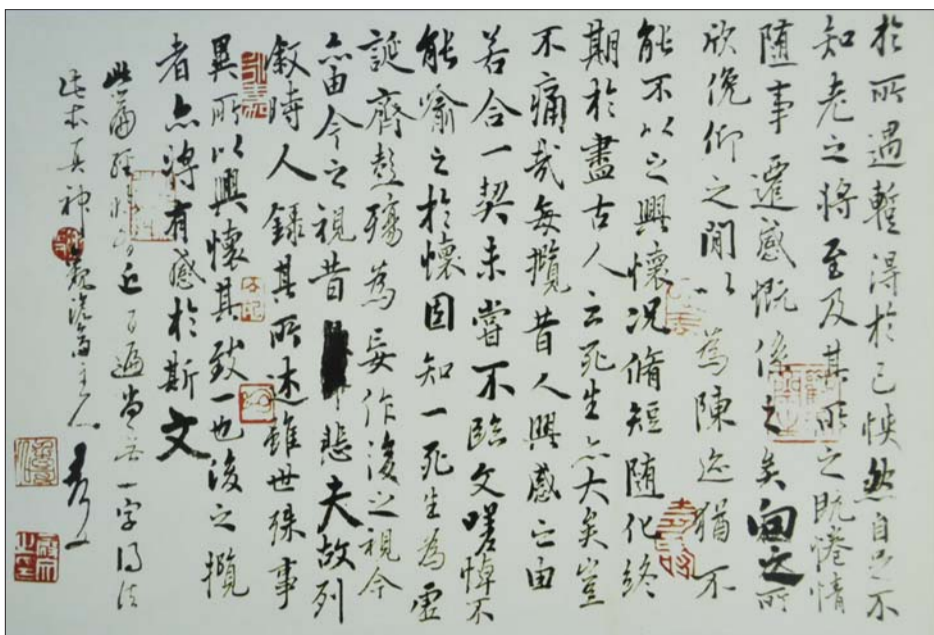 於所遇暫得於己怏然自足不
知老之将至及其所之既惓情
随事遷感慨係之矣向之所
欣俛仰之閒以為陳迹猶不
能不以之興懷况脩短随化終
期於盡古人云死生亦大矣豈
不痛哉每攬昔人興感之由
若合一契未嘗不臨文嗟悼不
能喻之於懷固知一死生為虛
誕齊彭殤為妄作後之視今
亦由今之視昔悲夫故列
敘時人錄其所述雖世殊事
異所以興懷其致一也後之攬
者亦将有感於斯文
此篇經近百遍尚無一字得法
此本真神